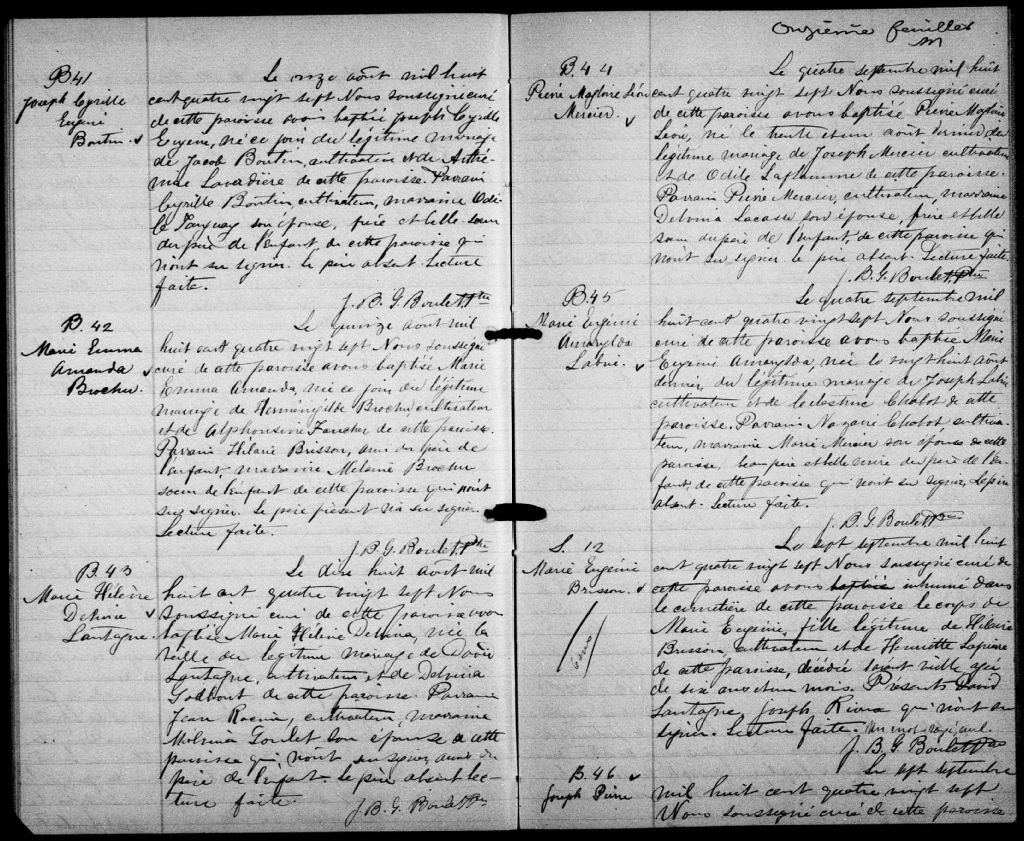 B 41
Joseph Cyrille
Eugène
Boutin.
Le onze août mil huit
cent quatre vingt sept Nous soussigné curé
de cette paroisse avons baptisé Joseph Cyrille
Eugène, né ce jour du légitime mariage
de Jacob Boutin, cultivateur et de Arthé-
mise Laverdière de cette paroisse. Parrain
Cyrille Boutin, cultivateur, marraine Odi-
le Tanguay son épouse, frère et belle soeur
du père de l'enfant, de cette paroisse qui
n'ont su signer. Le père absent. Lecture
faite.
J. B. G. Boulet Ptre
B. 42
Marie Emma
Amanda
Brochu.
Le quinze août mil
huit cent quatre vingt sept Nous soussigné
curé de cette paroisse avons baptisé Marie
Emma Amanda, née ce jour du légitime
mariage de Herménégilde Brochu cultivateur
et de Alphonsine Faucher de cette paroisse.
Parrain Hilaire Brisson, ami du père de
l'enfant marraine Mélanie Brochu
soeur de l'enfant de cette paroisse qui n'ont
su signer. Le père présent n'a su signer.
Lecture faite.
J. B. G. Boulet Ptre
B. 43
Marie Hélène
Delvina
Lantagne.
Le dix huit août mil
huit cent quatre vingt sept Nous
soussigné curé de cette paroisse avons
baptisé Marie Hélène Delvina, née la
veille du légitime mariage de David
Lantagne, cultivateur et de Delvina
Godbout de cette paroisse. Parrain
Jean cultivateur, marraine
Goulet son épouse de cette
paroisse qui n'ont su signer amis du
père de l'enfant. Le père absent lec-
ture faite.
J. B. G. Boulet Ptre
Onzième feuillet
B. 44
Pierre Magloire Léon
Mercier.
Le quatre septembre mil huit
cent quatre vingt sept Nous soussigné curé
de cette paroisse avons baptisé Pierre Magloire
Léon, né le trente et un août dernier du
légitime mariage de Joseph Mercier cultivateur
et de Odile Laflamme de cette paroisse.
Parrain Pierre Mercier, cultivateur, marraine
Delvina Lacasse son épouse, frère et belle
soeur du père de l'enfant, de cette paroisse qui
n'ont su signer. Le père absent. Lecture faite.
J. B. G. Boulet Ptre
B. 45
Marie Eugénie
Amarylda
Labrie.
Le quatre septembre mil
huit cent quatre vingt sept Nous soussigné
curé de cette paroisse avons baptisé Marie
Eugénie Amarylda, née le vingt huit août
dernier, du légitime mariage de Joseph Labrie
cultivateur et de Célestine Chabot de cette
paroisse. Parrain Nazaire Chabot cultiva-
teur, marraine Marie Mercier son épouse de cette
paroisse beau père et belle mère du père de l'en-
fant, de cette paroisse qui n'ont su signer, Le père
absent. Lecture faite.
J. B. G. Boulet Ptre
S. 12
Marie Eugénie
Brisson.
6 ans
Le sept septembre mil huit
cent quatre vingt sept Nous soussigné curé de
cette paroisse avons baptisé inhumé dans
le cimetière de cette paroisse le corps de
Marie Eugénie, fille légitime de Hilaire
Brisson, cultivateur et de Henriette Lapierre
de cette paroisse, décédée l'avant veille agée
de six ans et un mois. Présents David
Lantagne, Joseph qui n'ont su
signer. Lecture faite. Un mot rayé nul.
J. B. G. Boulet Ptre
B. 46
Joseph Pierre
Le sept septembre
mil huit cent quatre vingt sept
Nous soussigné curé de cette paroisse